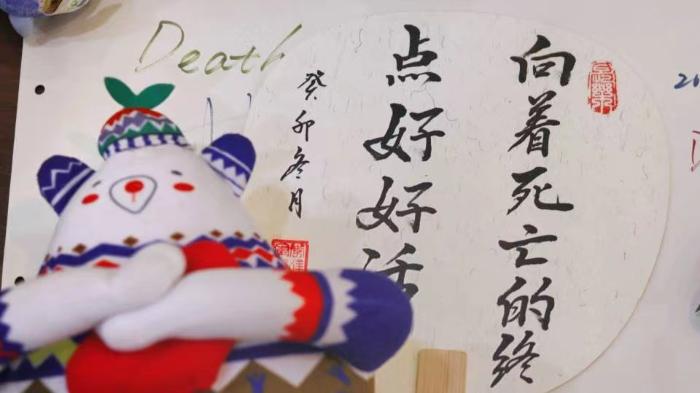 Death
向着死亡的终
点好好活
癸卯冬月